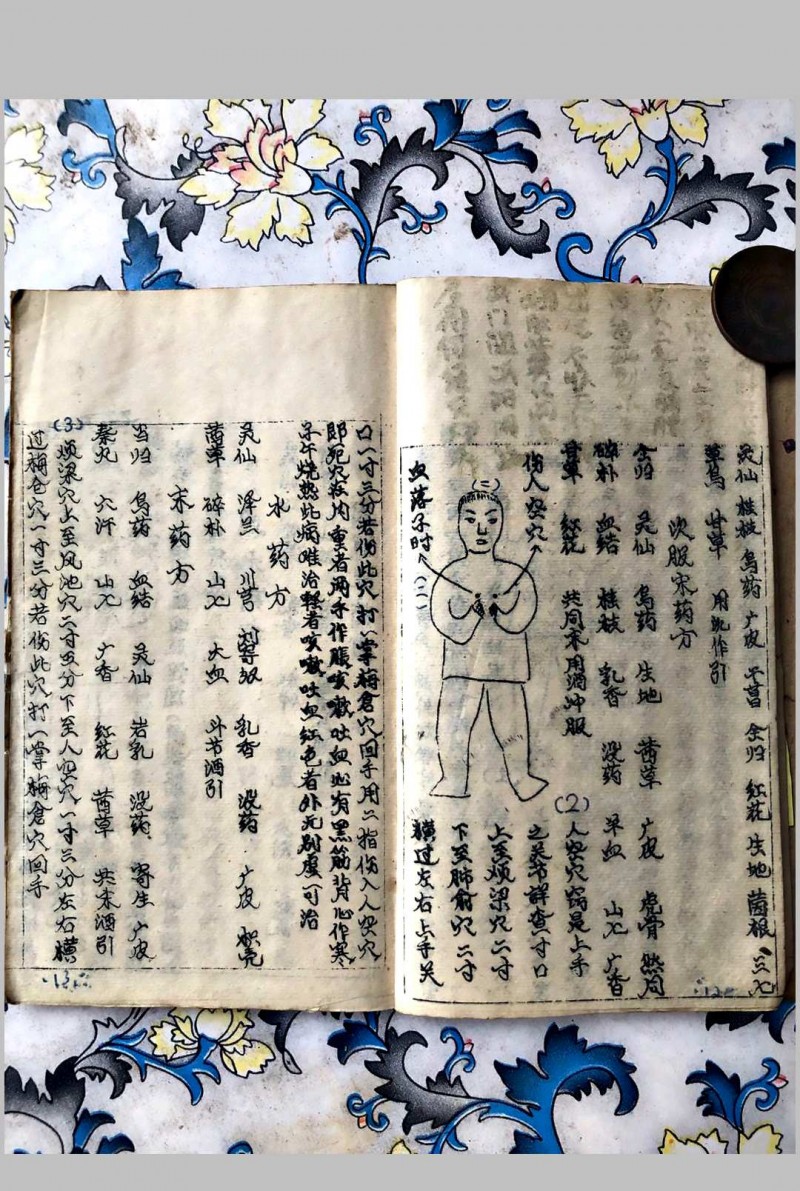 灵仙 桂枝 乌药 广皮 不菖 全归 红花 生地 茵根 三七
草乌 甘草 用氿作引
次服宋药方
全归 灵仙 乌药 生地 茜草 广皮 虎骨 然同
碎补 血结 桂枝 乳香 没药 早血 山七 广香
甘草 红花 共同末用酒冲服
伤人空穴
血落子时
(二)
(2)
人空穴窍是上手
之关节詳查一寸口
上至烦梁穴二寸
下至肺俞穴二寸
横过左右上手关
12
口一寸三分若伤此穴打一掌梅倉穴回手用二指伤入人空穴
即死穴夜内重者两手作脹咳嗽吐血必有黑筋背心作寒
子午烧热此病难治轻者咳嗽吐血红色者外无别虚一可治
水药方
灵仙 泽兰 川芎 刘寄奴 乳香 没药 广皮 枳壳
茜草 碎补 山七 大血 斗节酒引
末药方
当归 乌药 血结 灵仙 岩乳 没药 寄生 广皮
秦艽 穴汗 山七 广香 红花 茜草 共末酒引
(3)
烦梁穴上至风池穴二寸五分下至人空穴一寸三分左右横
过梅仓穴一寸三分若伤此穴打一掌梅倉穴回手
13